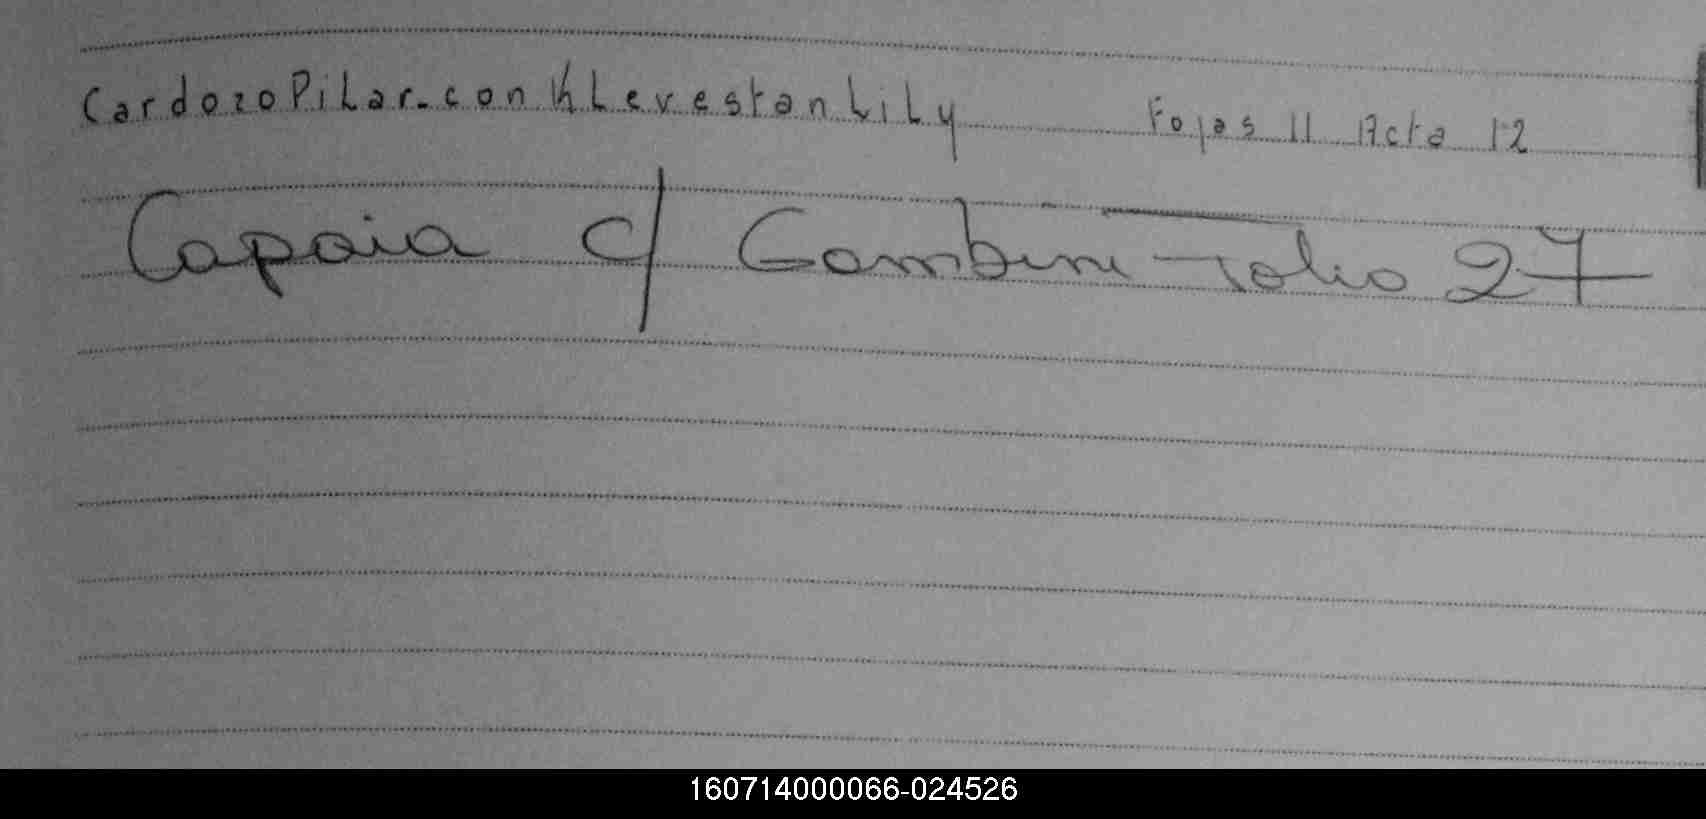 Cardozo Pilar-con Klevestan Lily Fojas 11 Acta 12
Capaia c/ Gambini - Folio 27
160714000066-024526